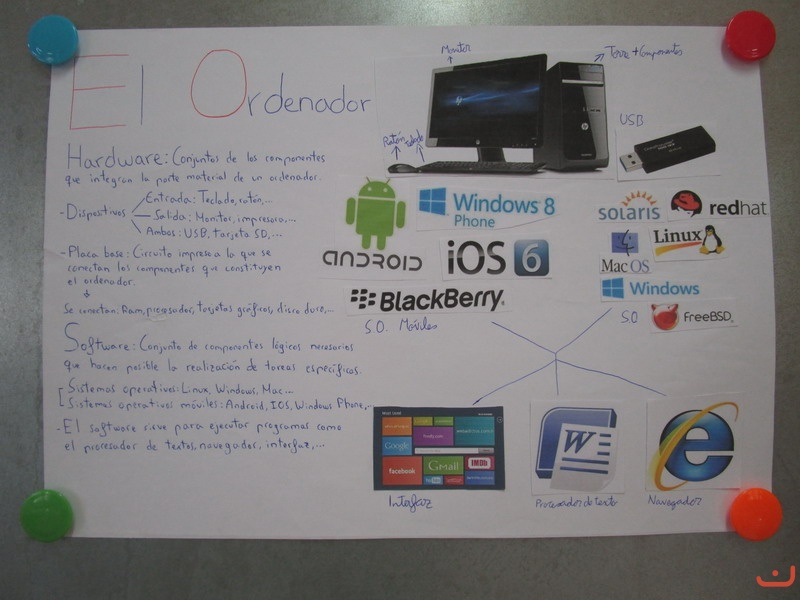 El Ordenador
Hardware: Conjuntos de los componentes
que integran la parte material de un ordenador.
- Dispostivos
Entrada: Teclado, ratón,...
Salida: Monitor, impresora,...
Ambos: USB, tarjeta SD,...
- Placa base: Circuito impreso a la que se
conectan los componentes que constituyen
el ordenador.
Se conectan: Ram, procesador, tarjetas gráficas, disco duro,...
Software: Conjunto de componentes lógicos necesarios
que hacen posible la realización de tareas específicas.
Sistemas operativos: Linux, Windows, Mac...
Sistemas operativos móviles: Android, IOS, Windows Phone,...
- El software sirve para ejecutar programas como
el procesador de textos, navegador, interfaz,...
Monitor
Torre + Componentes
Ratón
teclado
hp
USB
ANDROID
Windows 8
Phone
iOS 6
BlackBerry
S.O. Móviles
solaris
redhat
Mac OS
Linux
Windows
S.O
FreeBSD
Google
facebook
Gmail
IMDb
Intefaz
W
Procesador de texto
e
Navegador